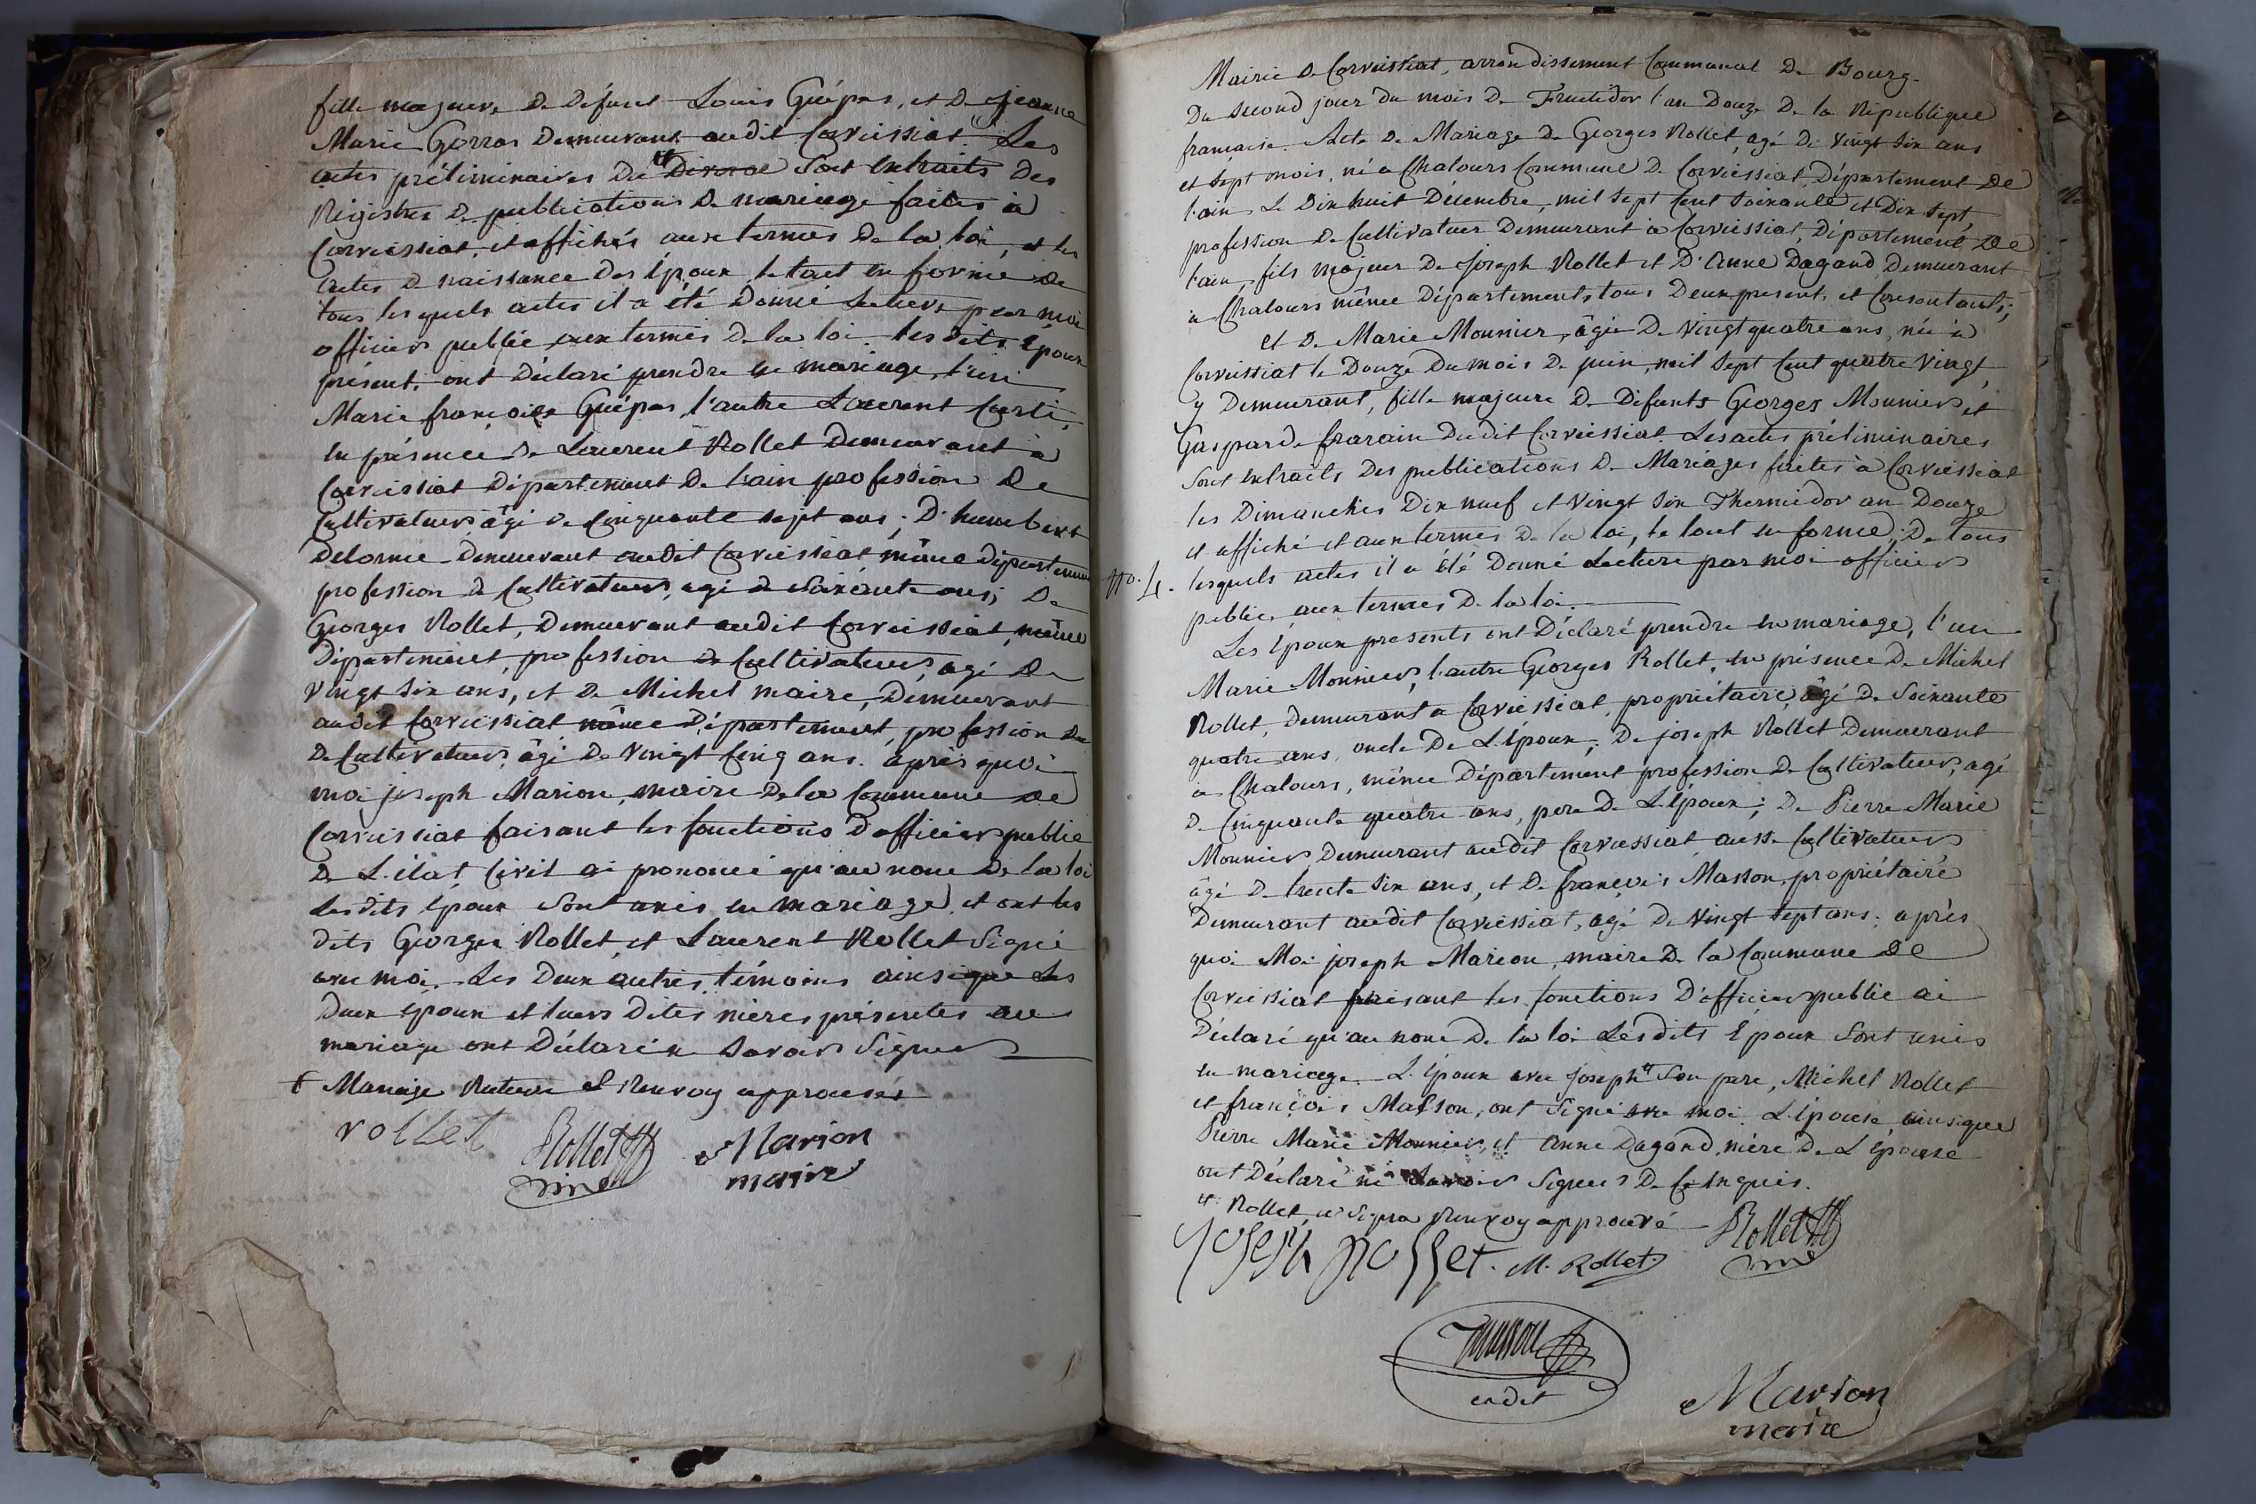 fille majeure De Defunt Louis Guépas, et De Jeanne
Marie Gorras Demeurant audit Corveissiat. Les
actes préliminaires Du Divorce Sont Extraits Des
Régistres De publications De mariage faites à
Corveissiat, et affichés aux termes De la loi, et les
actes De naissance Des Epoux le tout en forme De
tous lesquels actes il a été Donné Lecture par moi
officier public aux termes De la loi. les dits Epoux
présent, ont Déclaré prendre en mariage, l'un
Marie françoise Guépas, l'autre Laurent
en présence De Laurent Rollet Demeurant à
Corveissiat Département De l'ain profession De
Cultivateur âgé De Cinquante Sept ans; D'humbert
Delorme Demeurant audit Corveissiat même Département
profession De Cultivateur, agé De Soixante ans; De
Georges Rollet, Demeurant audit Corveissiat, même
Département, profession De Cultivateur, agé De
Vingt Six ans, et De Michel maire, Demeurant
audit Corveissiat même Département, profession De
De Cultivateur âgé De Vingt Cinq ans. après quoi
moi joseph Marion, maire De la Commune De
Corveissiat faisant les fonctions D'officier public
De L'état Civil ai prononcé qu'au nom De la loi
Lesdits Epoux Sont unis en mariage, et ont les
dits Georges Rollet, et Laurent Rollet Signé
avec moi. Les Deux autres témoins ainsi que Les
Deux Epoux et leurs Dites mères présentes au
mariage ont Déclaré ne Savoir Signer
† Mariage Rature et Renvoy approuvés
rollet Rollet Marion
maire
Mairie De Corveissiat, arrondissement Communal De Bourg.
Du Second jour Du mois De Fructidor l'an Douze De la République
française. Acte De Mariage De Georges Rollet, agé De Vingt Six ans
et Sept mois, né a Chalours Commune De Corveissiat, Département De
l'ain Le Dix huit Décembre, mil Sept Cent Soixante et Dix Sept,
profession De Cultivateur Demeurant à Corveissiat, Département De
l'ain, fils majeur De Joseph Rollet et D'Anne Dagand Demeurant
a Chalours même Département, tous Deux present, et Consentants;
et De Marie Mounier, âgée De Vingt quatre ans, née à
Corveissiat le Douze Du mois De juin, mil Sept Cent quatre Vingt,
y Demeurant, fille majeure De Defunts Georges Mounier et
Gasparde frarain Dudit Corveissiat. Les actes préliminaires
Sont Extraits Des publications De Mariages faites à Corveissiat
les Dimanches Dix neuf et Vingt Six Thermidor an Douze
et affiché et aux termes De la loi, le tout en forme; De tous
No. 4. lesquels actes il a été Donné Lecture par moi officier
public, aux termes De la loi.
Les Epoux presents ont Déclaré prendre en mariage, l'un
Marie Mounier, l'autre Georges Rollet, en présence De Michel
Rollet, Demeurant a Corveissiat, propriétaire, âgé De Soixante
quatre ans, oncle De L'Epoux; De joseph Rollet Demeurant
a Chalours, même Département profession De Cultivateur, agé
De Cinquante quatre ans, pere De L'Epoux; De Pierre Marie
Mounier Demeurant audit Corveissiat aussi Cultivateur
âgé De trente Six ans, et De françois Masson, propriétaire
Demeurant audit Corveissiat, agé De Vingt Sept ans. après
quoi Moi joseph Marion, maire De la Commune De
Corveissiat faisant les fonctions D'officier public ai
Déclaré qu'au nom De la loi Lesdits Epoux Sont unis
en mariage. L'Epoux avec joseph Son pere, Michel Rollet
et françois Masson, ont Signé avec moi. L'Epouse ainsi que
Pierre Marie Mounier, et Anne Dagand, mère De L'Epouse
ont Déclaré ne Savoir Signer De Ce Enquis.
Rollet, Renvoy approuvé
Joseph Rollet. M. Rollet Rollet
masson
cadet
Marion
maire